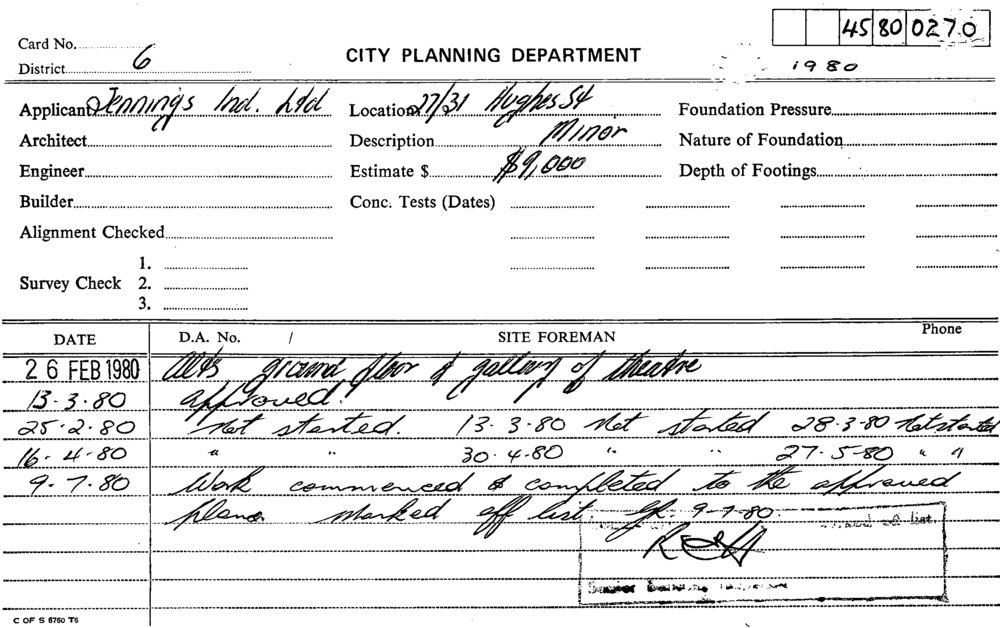 45 80 0270
Card No.
District 6
CITY PLANNING DEPARTMENT
1980
Applicant Jennings Ind. Ltd Location 27/31 Hughes St Foundation Pressure
Architect Description Minor Nature of Foundation
Engineer Estimate $ $9,000 Depth of Footings
Builder Conc. Tests (Dates)
Alignment Checked
Survey Check 1.
2.
3.
DATE D.A. No. / SITE FOREMAN Phone
26 FEB 1980 Alts ground floor & gallery of theatre
13-3-80 approved.
25-2-80 Not started. 13-3-80 Not started 28-3-80 Not started
16-4-80 " " 30-4-80 " " 27-5-80 " "
9-7-80 Work commenced & completed to the approved
plans. Marked off list. 9-7-80.
list.
Senior Building
C OF S 6760 T6